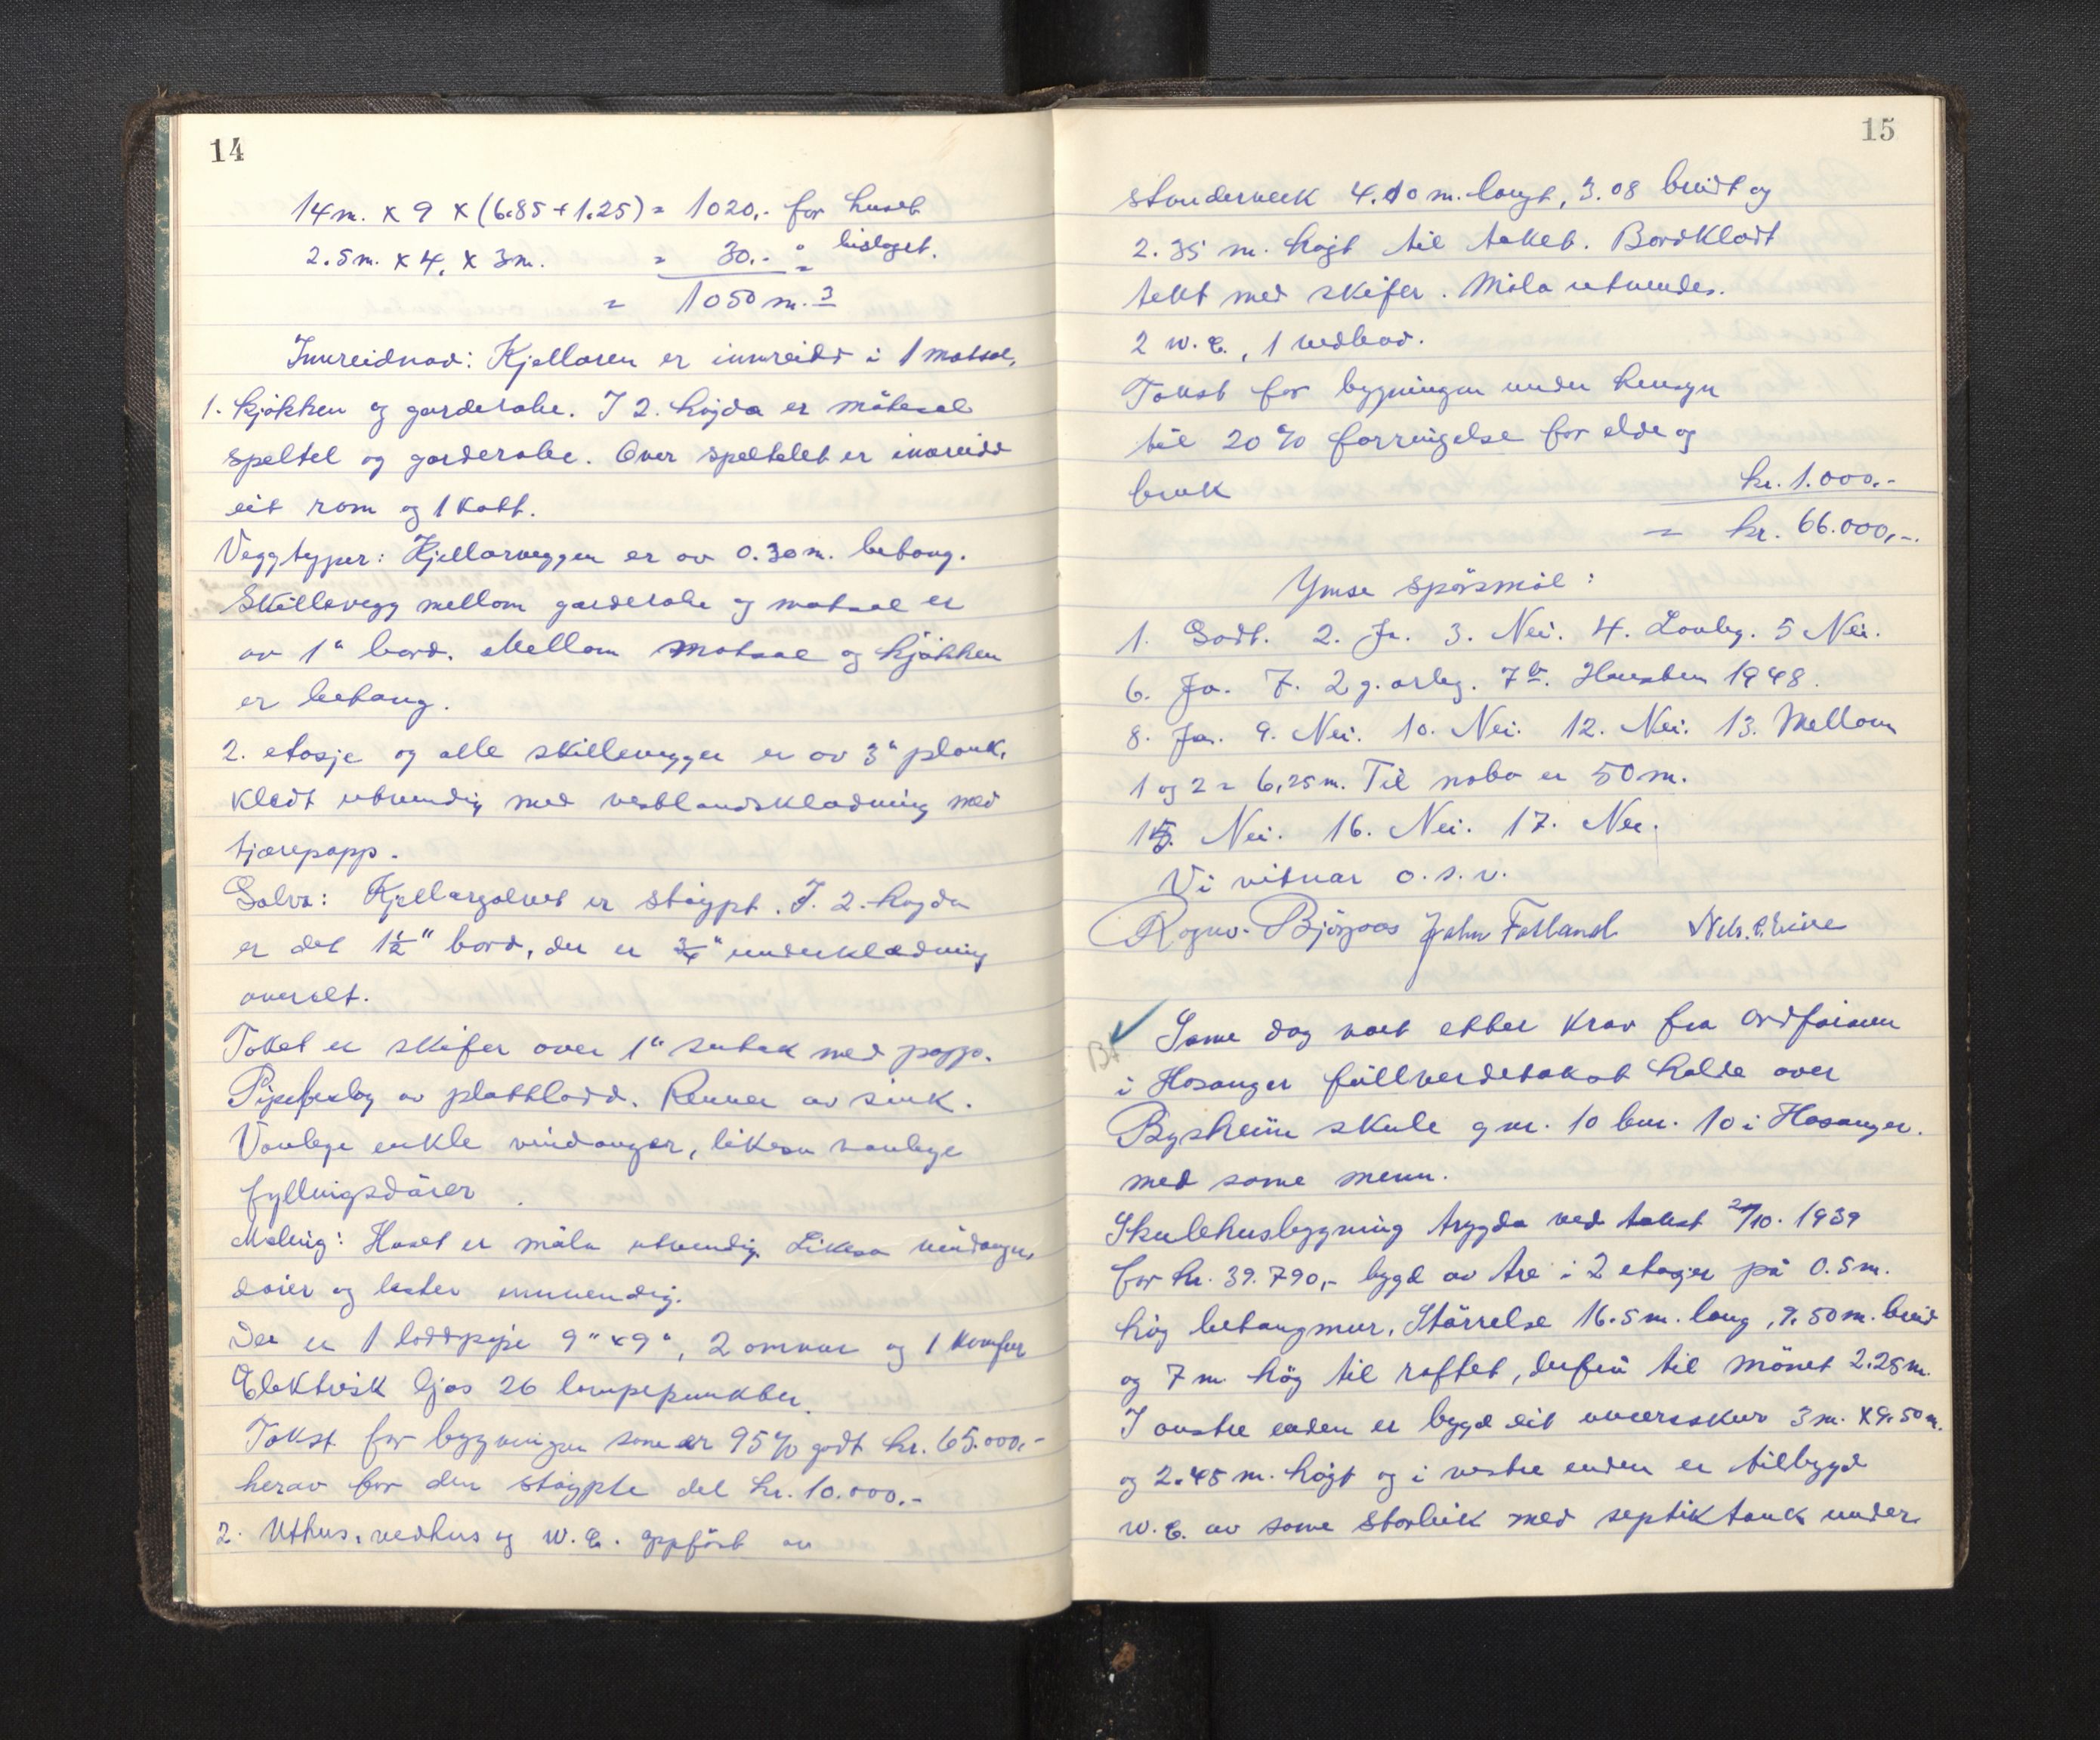 14
14 m. x 9 x (6.85 + 1.25) = 1020,- for huset
2.5 m. x 4, x 3 m. = 30,- " bislaget.
= 1050 m.3
Innreidnad: Kjellaren er innreidd i 1 matsal,
1. kjøkken og garderobe. I 2. høgda er møtesal
speltel og garderobe. Over speltelet er innreidd
eit rom og 1 kott.
Veggtyper: Kjellarveggen er av 0.30 m. betong.
Skillevegg mellom garderobe og matsal er
av 1" bord. Mellom matsal og kjøkken
er betong.
2. etasje og alle skillevegger er av 3" plank,
kledt utvendig med vestlandskledning med
tjærepapp.
Golva: Kjellargolvet er støypt. I. 2. høgda
er det 1½" bord, der er ¾" underkledning
overalt.
Taket er skifer over 1" sutak med papp.
Pipebeslag av plattlodd. Renner av sink.
Vanlege enkle vindauger, likeso vanlege
fyllingsdører.
Maling: Huset er måla utvendig. Likeso vindauger,
dører og lister innvendig.
Der er 1 loddpipe 9" x 9", 2 omnar og 1 komfyr
Elektrisk ljos 26 lampepunkter.
Takst for bygningen som er 95% godt kr. 65.000,-
herav for den støypte del kr. 10.000,-
2. Uthus, vedhus og W.C. oppført av
15
stenderverk 4.10 m. langt, 3.08 breidt og
2.35 m. høgt til taket. Bordkledt
tekt med skifer. Måla utvendes.
2 w.c., 1 vedbod.
Takst for bygningen under hensyn
til 20% forringelse for elde og
bruk kr. 1.000,-
= kr. 66.000,-
Ymse spørsmål:
1. Godt. 2. Ja. 3. Nei. 4. Lovleg. 5 Nei.
6. Ja. 7. 2 g. årleg. 7b. Hausten 1948.
8. Ja. 9. Nei. 10. Nei. 12. Nei. 13. Mellom
1 og 2 = 6,25 m. Til nabo er 50 m.
15. Nei. 16. Nei. 17. Nei.
Vi vitnar o.s.v.
Rognv. Bjørgaas John Fotland Nils
Same dag vart etter krav fra ordføraren
i Hosanger fullverdetakst halde over
Bysheim skule gnr. 10 bnr. 10 i Hosanger.
med same menn.
Skulehusbygning trygda ved takst /10. 1939
for kr. 39.790,- bygd av tre i 2 etager på 0.5 m.
høg betongmur. Størrelse 16.5 m. lang, 9.50 m. breid
og 7 m. høg til raftet, derfrå til mønet 2.25 m.
I austre enden er bygd eit uversskur 3 m. x 9.50 m.
og 2.45 m. høgt og i vestre enden er tilbygd
W.C. av same storleik med septiktank under.